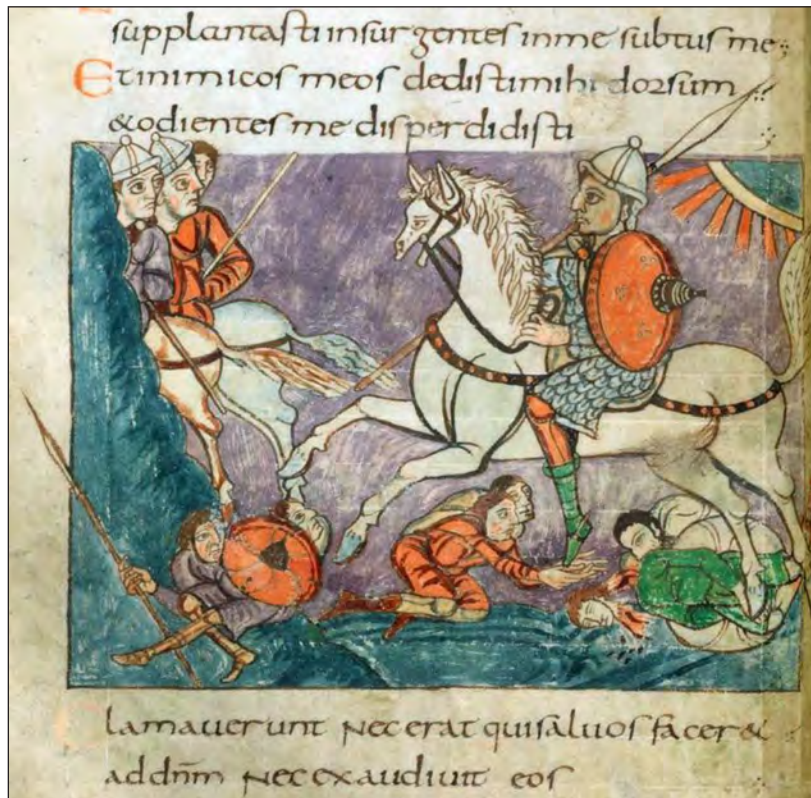 supplantasti insurgentes in me subtus me
Et inimicos meos dedisti mihi dorsum
& odientes me disperdidisti
Clamauerunt nec erat qui saluos facer&
ad dn̄m nec exaudiuit eos